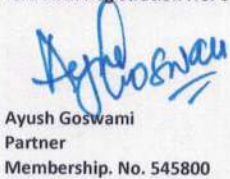 Ayush Goswami
Ayush Goswami
Partner
Membership. No. 545800